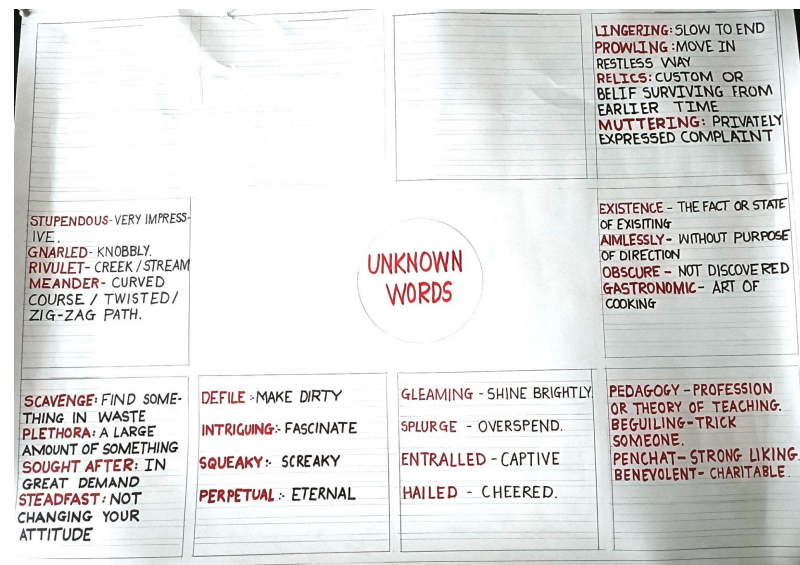 LINGERING: SLOW TO END
PROWLING: MOVE IN
RESTLESS WAY
RELICS: CUSTOM OR
BELIF SURVIVING FROM
EARLIER TIME
MUTTERING: PRIVATELY
EXPRESSED COMPLAINT
STUPENDOUS- VERY IMPRESS-
IVE.
GNARLED- KNOBBLY.
RIVULET- CREEK / STREAM
MEANDER- CURVED
COURSE / TWISTED /
ZIG-ZAG PATH.
UNKNOWN
WORDS
EXISTENCE - THE FACT OR STATE
OF EXISITING
AIMLESSLY- WITHOUT PURPOSE
OF DIRECTION
OBSCURE - NOT DISCOVERED
GASTRONOMIC - ART OF
COOKING
SCAVENGE: FIND SOME-
THING IN WASTE
PLETHORA: A LARGE
AMOUNT OF SOMETHING
SOUGHT AFTER: IN
GREAT DEMAND
STEADFAST: NOT
CHANGING YOUR
ATTITUDE
DEFILE :- MAKE DIRTY
INTRIGUING:- FASCINATE
SQUEAKY:- SCREAKY
PERPETUAL :- ETERNAL
GLEAMING - SHINE BRIGHTLY
SPLURGE - OVERSPEND.
ENTRALLED - CAPTIVE
HAILED - CHEERED.
PEDAGOGY - PROFESSION
OR THEORY OF TEACHING.
BEGUILING- TRICK
SOMEONE.
PENCHAT- STRONG LIKING.
BENEVOLENT- CHARITABLE.